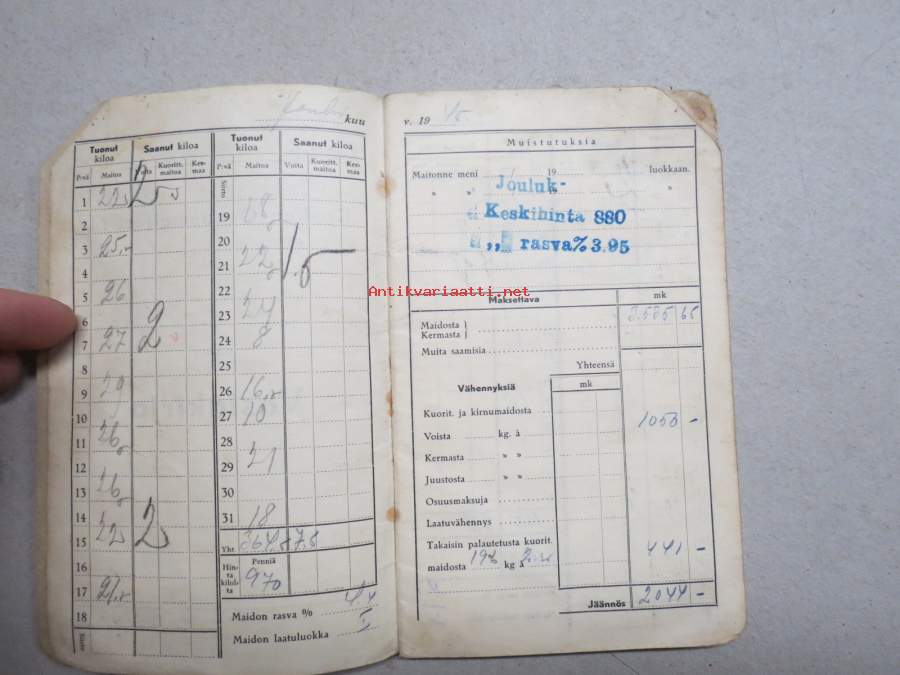 Joulu kuu
Tuonut kiloa Saanut kiloa Tuonut kiloa Saanut kiloa
P:nä Maitoa Voita Kuoritt. maitoa Ker- maa P:nä Maitoa Voita Kuoritt. maitoa Ker- maa
Siirto
1 2
2
3 25,-
4
5 26
6
7 27 2
8
9 29
10
11 26
12
13 26
14
15 22 2
16
17
18
Siirto
19 18
20
21 22 1.5
22
23 29
24 8
25
26 16
27 10
28
29 21
30
31 18
Yht. 364.8 7.8
Hin- ta kilol- ta Penniä
970
Maidon rasva % 4,4
Maidon laatuluokka I
v. 19
Muistutuksia
Maitonne meni 19 luokkaan.
" " 19 "
Jouluk-
Keskihinta 880
,, rasva% 3.95
Antikvariaatti.net
Maksettava mk
Maidosta }
Kermasta } 3.535 65
Muita saamisia
Yhteensä
Vähennyksiä mk
Kuorit. ja kirnumaidosta
Voista kg. à 1053 -
Kermasta " "
Juustosta " "
Osuusmaksuja
Laatuvähennys
Takaisin palautetusta kuorit. 441 -
maidosta 196 kg à
Jäännös 2044 -